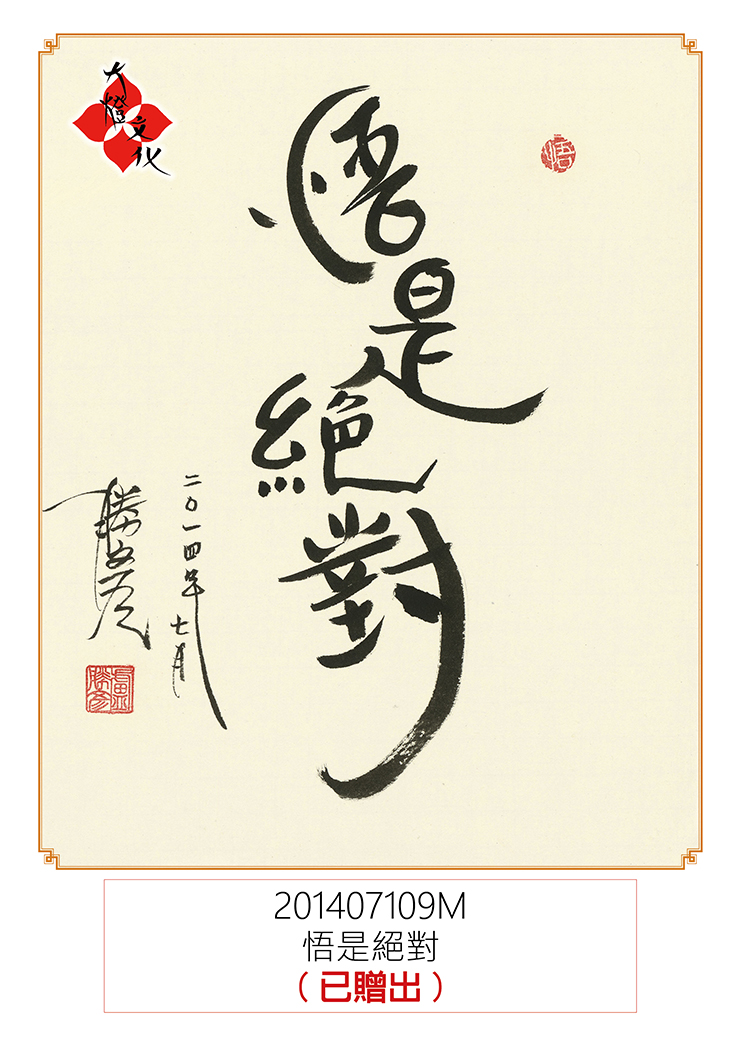 大燈文化
悟
悟是絕對
二〇一四年七月
勝彥
盧勝彥
201407109M
悟是絕對
（已贈出）